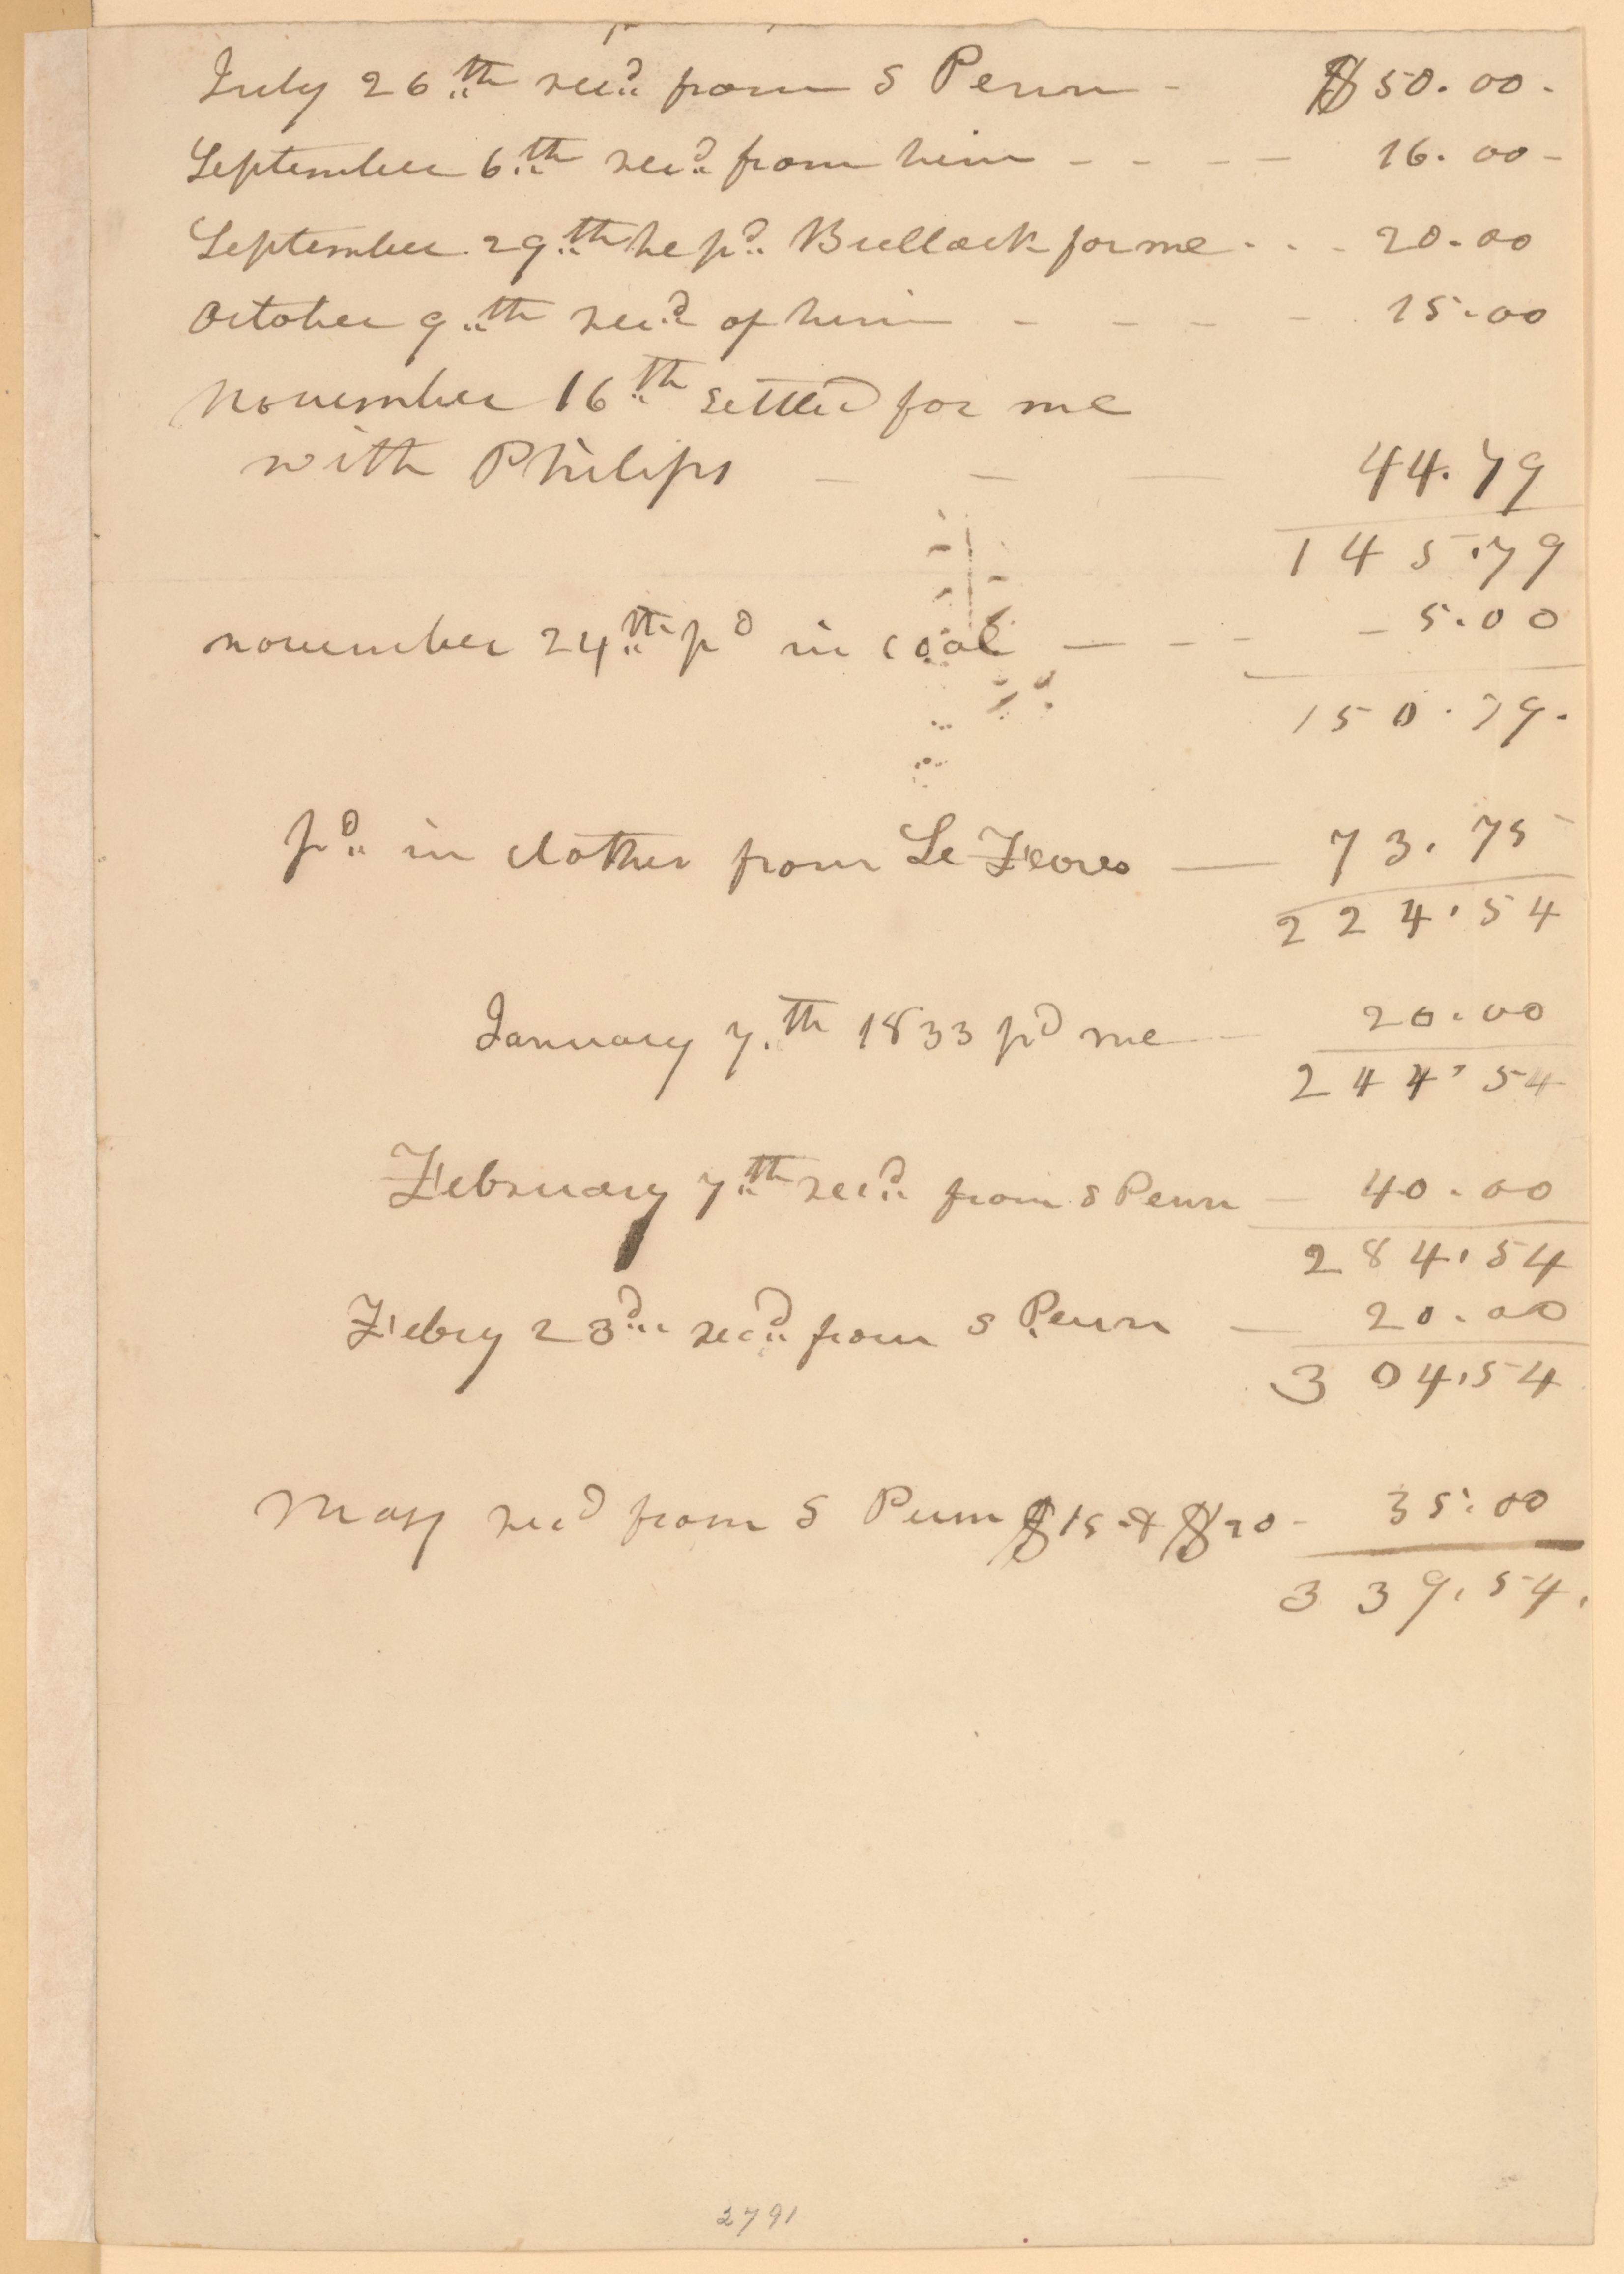 July 26th recd from S Penn - $50.00.
September 6th recd from him - - - - 16.00-
September 29th he pd Bullock for me - - - 20.00
October 9th recd of him - - - - 15.00
November 16th settled for me
with Philips - - - 44.79
145.79
November 24th pd in coal - - - - 5.00
150.79.
pd in clothes from Le Fevres - 73.75
224.54
January 7th 1833 pd me - 20.00
244.54
February 7th recd from S Penn - 40.00
284.54
Febry 23d recd from S Penn - 20.00
304.54
May recd from S Penn $15 & $20 - 35.00
339.54.
2791